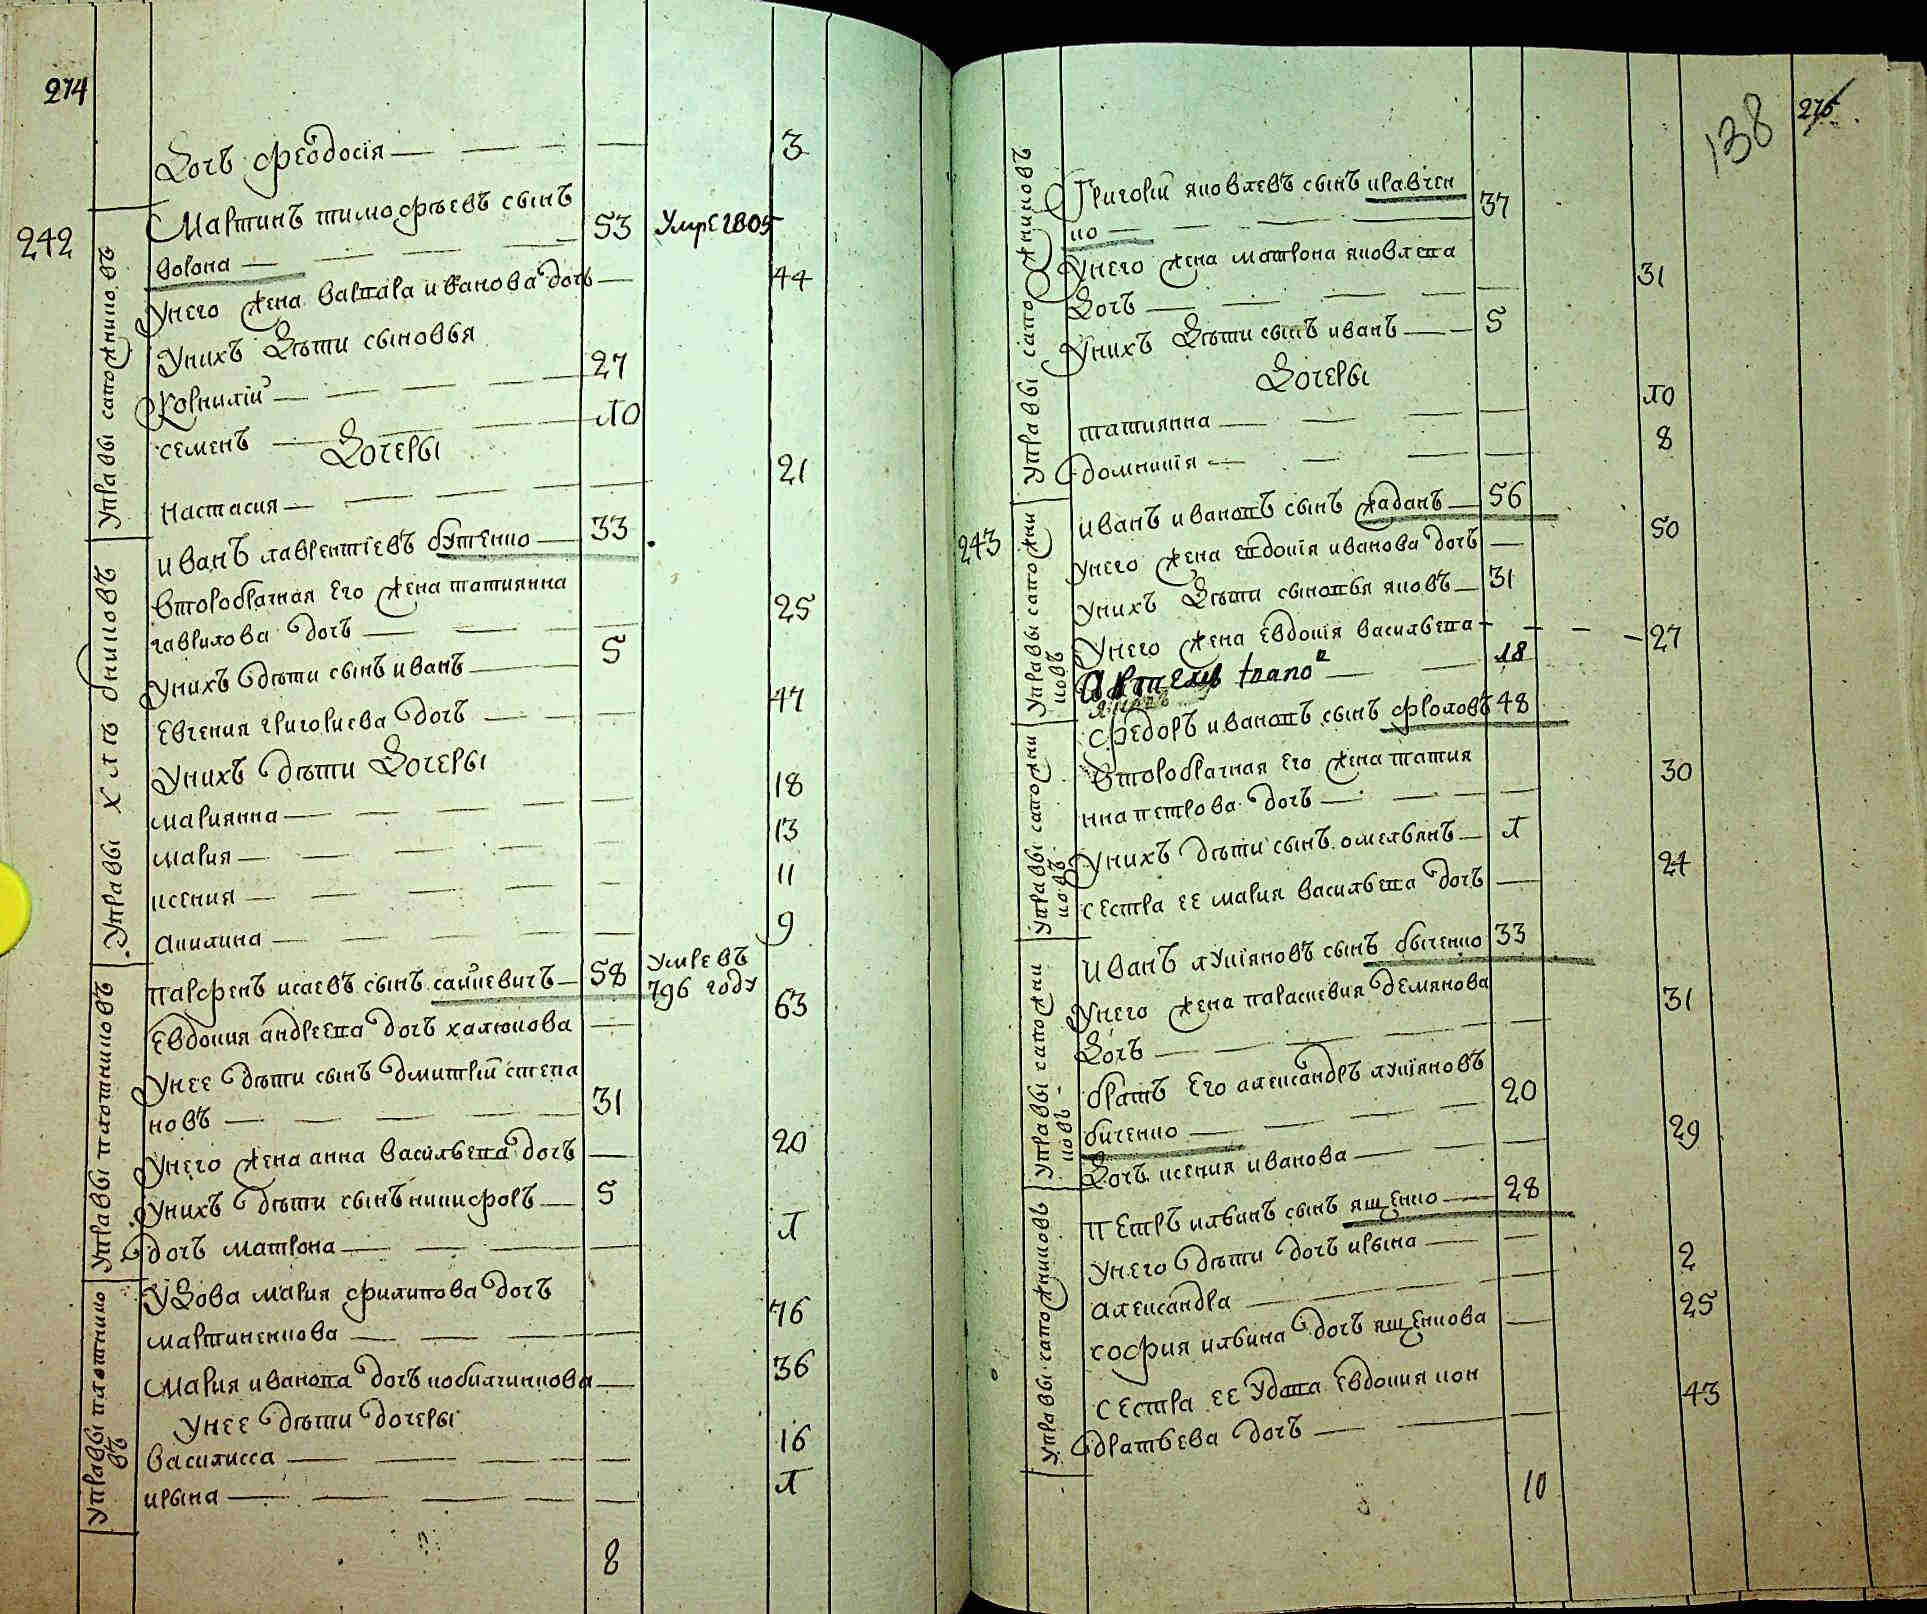 274
дочь феодосія — 3
242
Управы сапожниковъ
Мартинъ тимофѣевъ сынъ
ворона — 53 Умре 1805
у него жена варвара иванова дочь — 44
у нихъ дѣти сыновья
корнилій — 27
семенъ — 10
дочеры
настасия — 21
Управы хлѣбниковъ
иванъ лаврентіевъ бутенко — 33
второбрачная его жена татиянна
гаврилова дочь — 25
у нихъ дѣти сынъ иванъ — 5
евгения григориева дочь — 47
у нихъ дѣти дочеры
мариянна — 18
мария — 13
ксения — 11
акилина — 9
Управы плотниковъ
парфенъ исаевъ сынъ сацкевичъ — 58 умре въ
796 году
евдокия андреева дочь халюкова — 63
у нее дѣти сынъ дмитрій степа
новъ — 31
у него жена анна васильева дочь — 20
у нихъ дѣти сынъ никифоръ — 5
дочь матрона — 1
Управы плотнико
въ
удова мария филипова дочь
мартиненкова — 76
мария иванова дочь кобилчинкова — 36
у нее дѣти дочеры
василисса — 16
ирына — 1
8
138 275
Управы сапожниковъ
Григорій яковлевъ сынъ кравчен
ко — 37
у него жена матрона яковлева
дочь — 31
у нихъ дѣти сынъ иванъ — 5
дочеры
татиянна — 10
домникія — 8
243
Управы сапожни
ковъ
иванъ ивановъ сынъ жаданъ — 56
у него жена евдокія иванова дочь — 50
у нихъ дѣти сыновья яковъ — 31
у него жена евдокія васильева — 27
18
Управы сапожни
ковъ
федоръ ивановъ сынъ фроловъ 48
второбрачная его жена татия
нна петрова дочь — 30
у нихъ дѣти сынъ омельянъ — 1
сестра ее мария васильева дочь — 24
Управы сапожни
ковъ
иванъ лукіяновъ сынъ быченко 33
у него жена параскевия демянова
дочь — 31
братъ его александръ лукіяновъ
биченко — 20
дочь ксения иванова — 29
Управы сапожниковъ
петръ ильинъ сынъ ященко — 28
у него дѣти дочь ирына — 2
александра — 25
софия ильина дочь ященкова —
сестра ее удова евдокия кон
дратьева дочь — 43
10